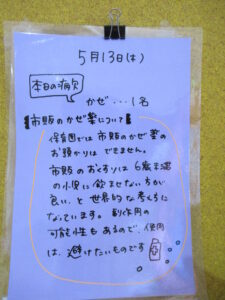 5月13日(木)
本日の病欠
かぜ・・・1名
【市販のかぜ薬について】
保育園では市販のかぜ薬の
お預かりはできません。
市販のおくすりは6歳未満
の小児に飲ませない方が
良い、と世界的な考えに
なっています。副作用の
可能性もあるので、使用
は、避けたいものです